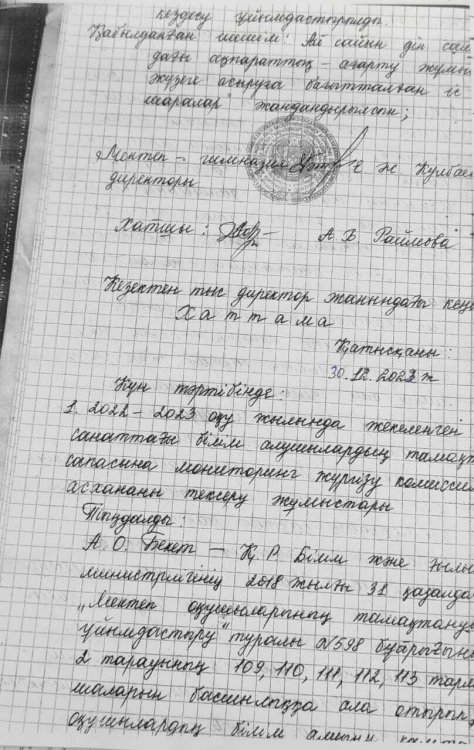 кездесу ұйымдастырылды.
Қабылданған шешім: Ай сайын дін сал
дағы ақпараттық - ағарту жұмыс
жүзеге асыруға бағытталған іс
шаралар жандандырылсын;
Мектеп - гимназия Е. Ж. Кулбаев
директоры
Хатшы: А. Б. Раймова
Кезектен тыс директор жанындағы кеңе
Хаттама
Қатысқаны:
30.12.2022 ж
Күн тәртібінде:
1. 2022 - 2023 оқу жылында жекеленген
санаттағы білім алушылардың тамақт
сапасына мониторинг жүргізу комиссия
асхананы тексеру жұмыстары
Тыңдалды:
А. О. Бекет – Қ.Р. Білім және ғылы
министрлігінің 2018 жылғы 31 қазанда
"Мектеп оқушыларының тамақтану
ұйымдастыру" туралы №598 бұйрығын
2 тарауының 109, 110, 111, 112, 113 тарм
шаларын басшылыққа ала отырып
оқушылардың білім алушы